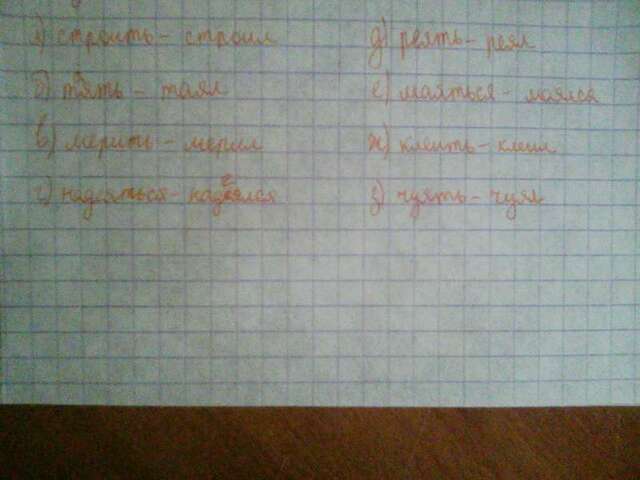 а) строить - строил
б) таять - таял
в) мерить - мерил
г) надеяться - надеялся
д) реять - реял
е) маяться - маялся
ж) клеить - клеил
з) чуять - чуял